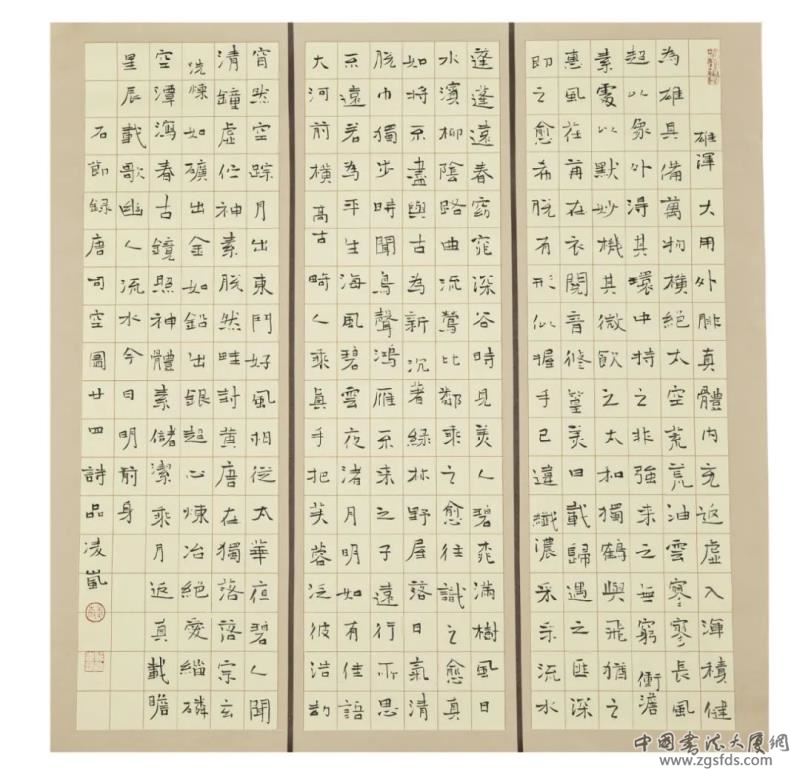 雄渾大用外腓真體內充返虛入渾積健
為雄具備萬物橫絕太空荒荒油雲寥寥長風
超以象外得其環中持之非強來之無窮衝澹
素處以默妙機其微飲之太和獨鶴與飛猶之
惠風荏苒在衣閱音修篁美曰載歸遇之匪深
即之愈希脫有形似握手已違纖濃采采流水
蓬蓬遠春窈窕深谷時見美人碧桃滿樹風日
水濱柳陰路曲流鶯比鄰乘之愈往識之愈真
如將不盡與古為新沉著綠林野屋落日氣清
脫巾獨步時聞鳥聲鴻雁不來之子遠行所思
不遠若為平生海風碧雲夜渚月明如有佳語
大河前橫高古畸人乘真手把芙蓉泛彼浩劫
窅然空踪月出東門好風相從太華夜碧人聞
清鐘虛佇神素脫然畦封黃唐在獨落落宗玄
洗煉如礦出金如鉛出銀超心煉冶絕愛緇磷
空潭瀉春古鏡照神體素儲潔乘月返真載瞻
星辰載歌幽人流水今日明前身
右節錄唐司空圖廿四詩品凌嵐
中國書法大厦網
www.zgsfds.com